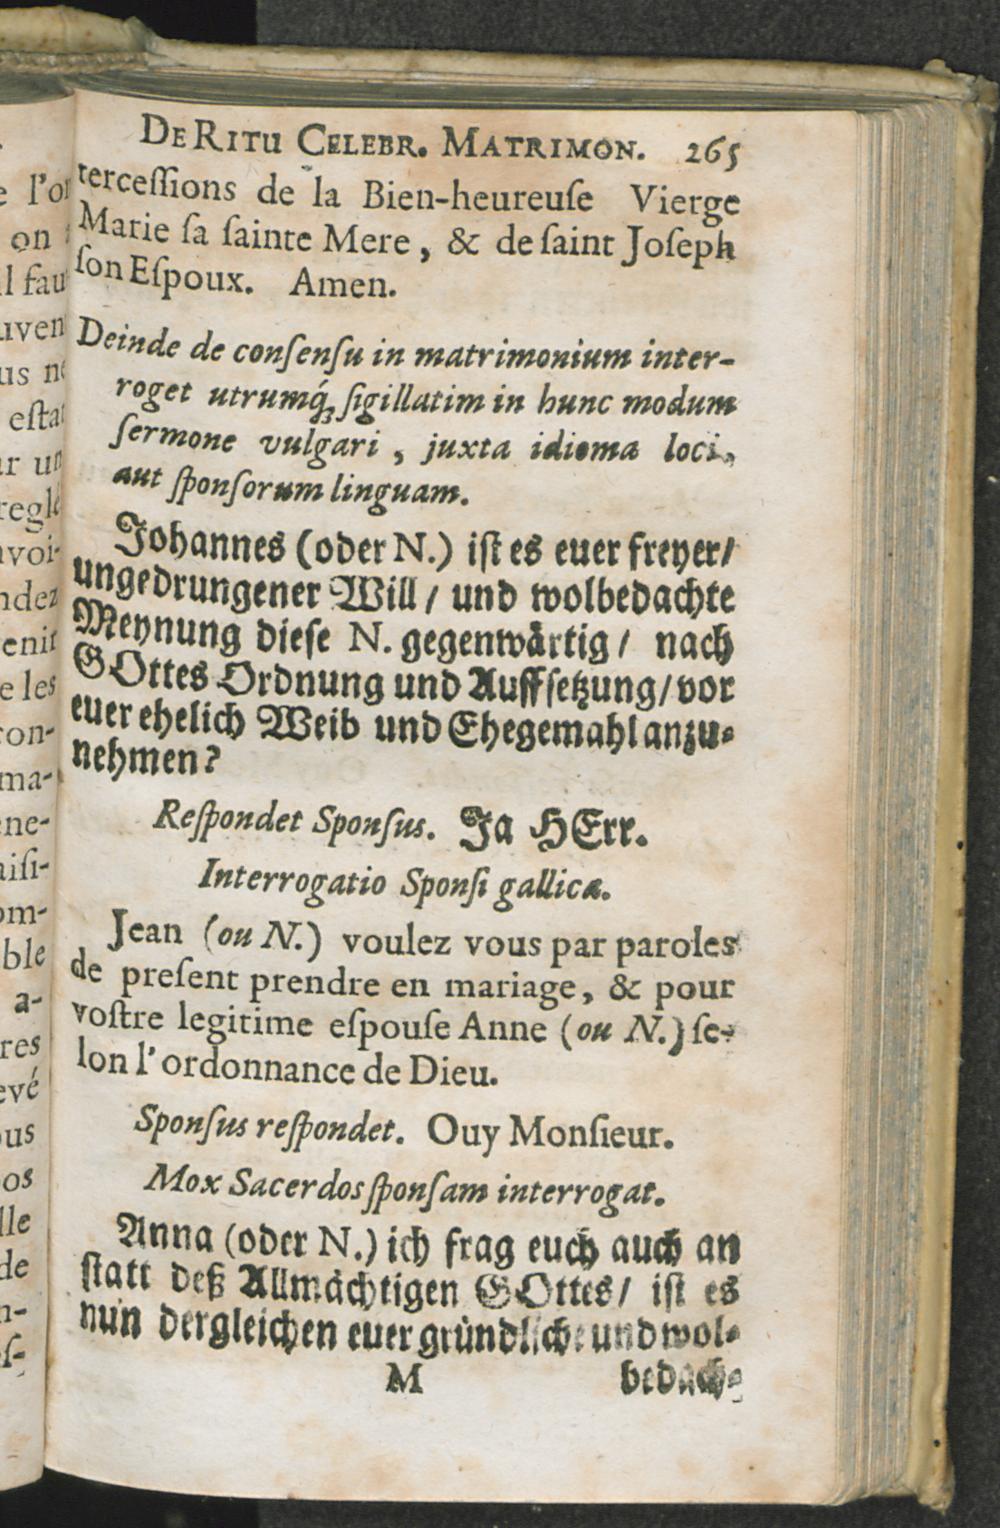 DE RITU CELEBR. MATRIMON. 265
terceſſions de la Bien-heureuſe Vierge
Marie ſa ſainte Mere, & de ſaint Joſeph
ſon Eſpoux. Amen.
Deinde de conſenſu in matrimonium inter-
roget utrumq́; ſigillatim in hunc modum
ſermone vulgari, juxta idioma loci,
aut ſponſorum linguam.
Johannes (oder N.) iſt es euer freyer/
ungedrungener Will / und wolbedachte
Meynung dieſe N. gegenwärtig / nach
GOttes Ordnung und Auffſetzung/ vor
euer ehelich Weib und Ehegemahl anzu-
nehmen?
Reſpondet Sponſus. Ja HErr.
Interrogatio Sponſi gallica.
Jean (ou N.) voulez vous par paroles
de preſent prendre en mariage, & pour
voſtre legitime eſpouſe Anne (ou N.) ſe-
lon l'ordonnance de Dieu.
Sponſus reſpondet. Ouy Monſieur.
Mox Sacerdos ſponſam interrogat.
Anna (oder N.) ich frag euch auch an
ſtatt deß Allmächtigen GOttes/ iſt es
nun dergleichen euer gründliche und wol-
M bedach-